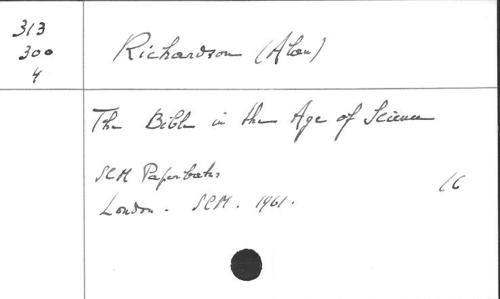 313
300
4
Richardson (Alan)
The Bible in the Age of Science
SCM Paperbacks
16
London. SCM. 1961.